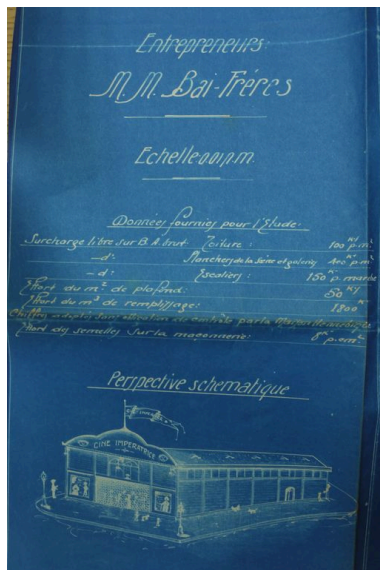 Entrepreneurs:
M.M. Bai-Frères
Echelle 0.01 p.m.
Données fournies pour l'Etude.
Surcharge libre sur B.A. brut Toiture: 100 K⁹ p.m²
-d°- Planchers de la Scène et galeries 400 K p.m²
-d°- Escaliers: 150 K p. marche
Effort du m² de plafond: 50 K⁹
Effort du m³ de remplissage: 1800 K
Effort des semelles sur la maçonnerie: 8 K p.cm²
Perspective schematique
CINE IMPERATRICE